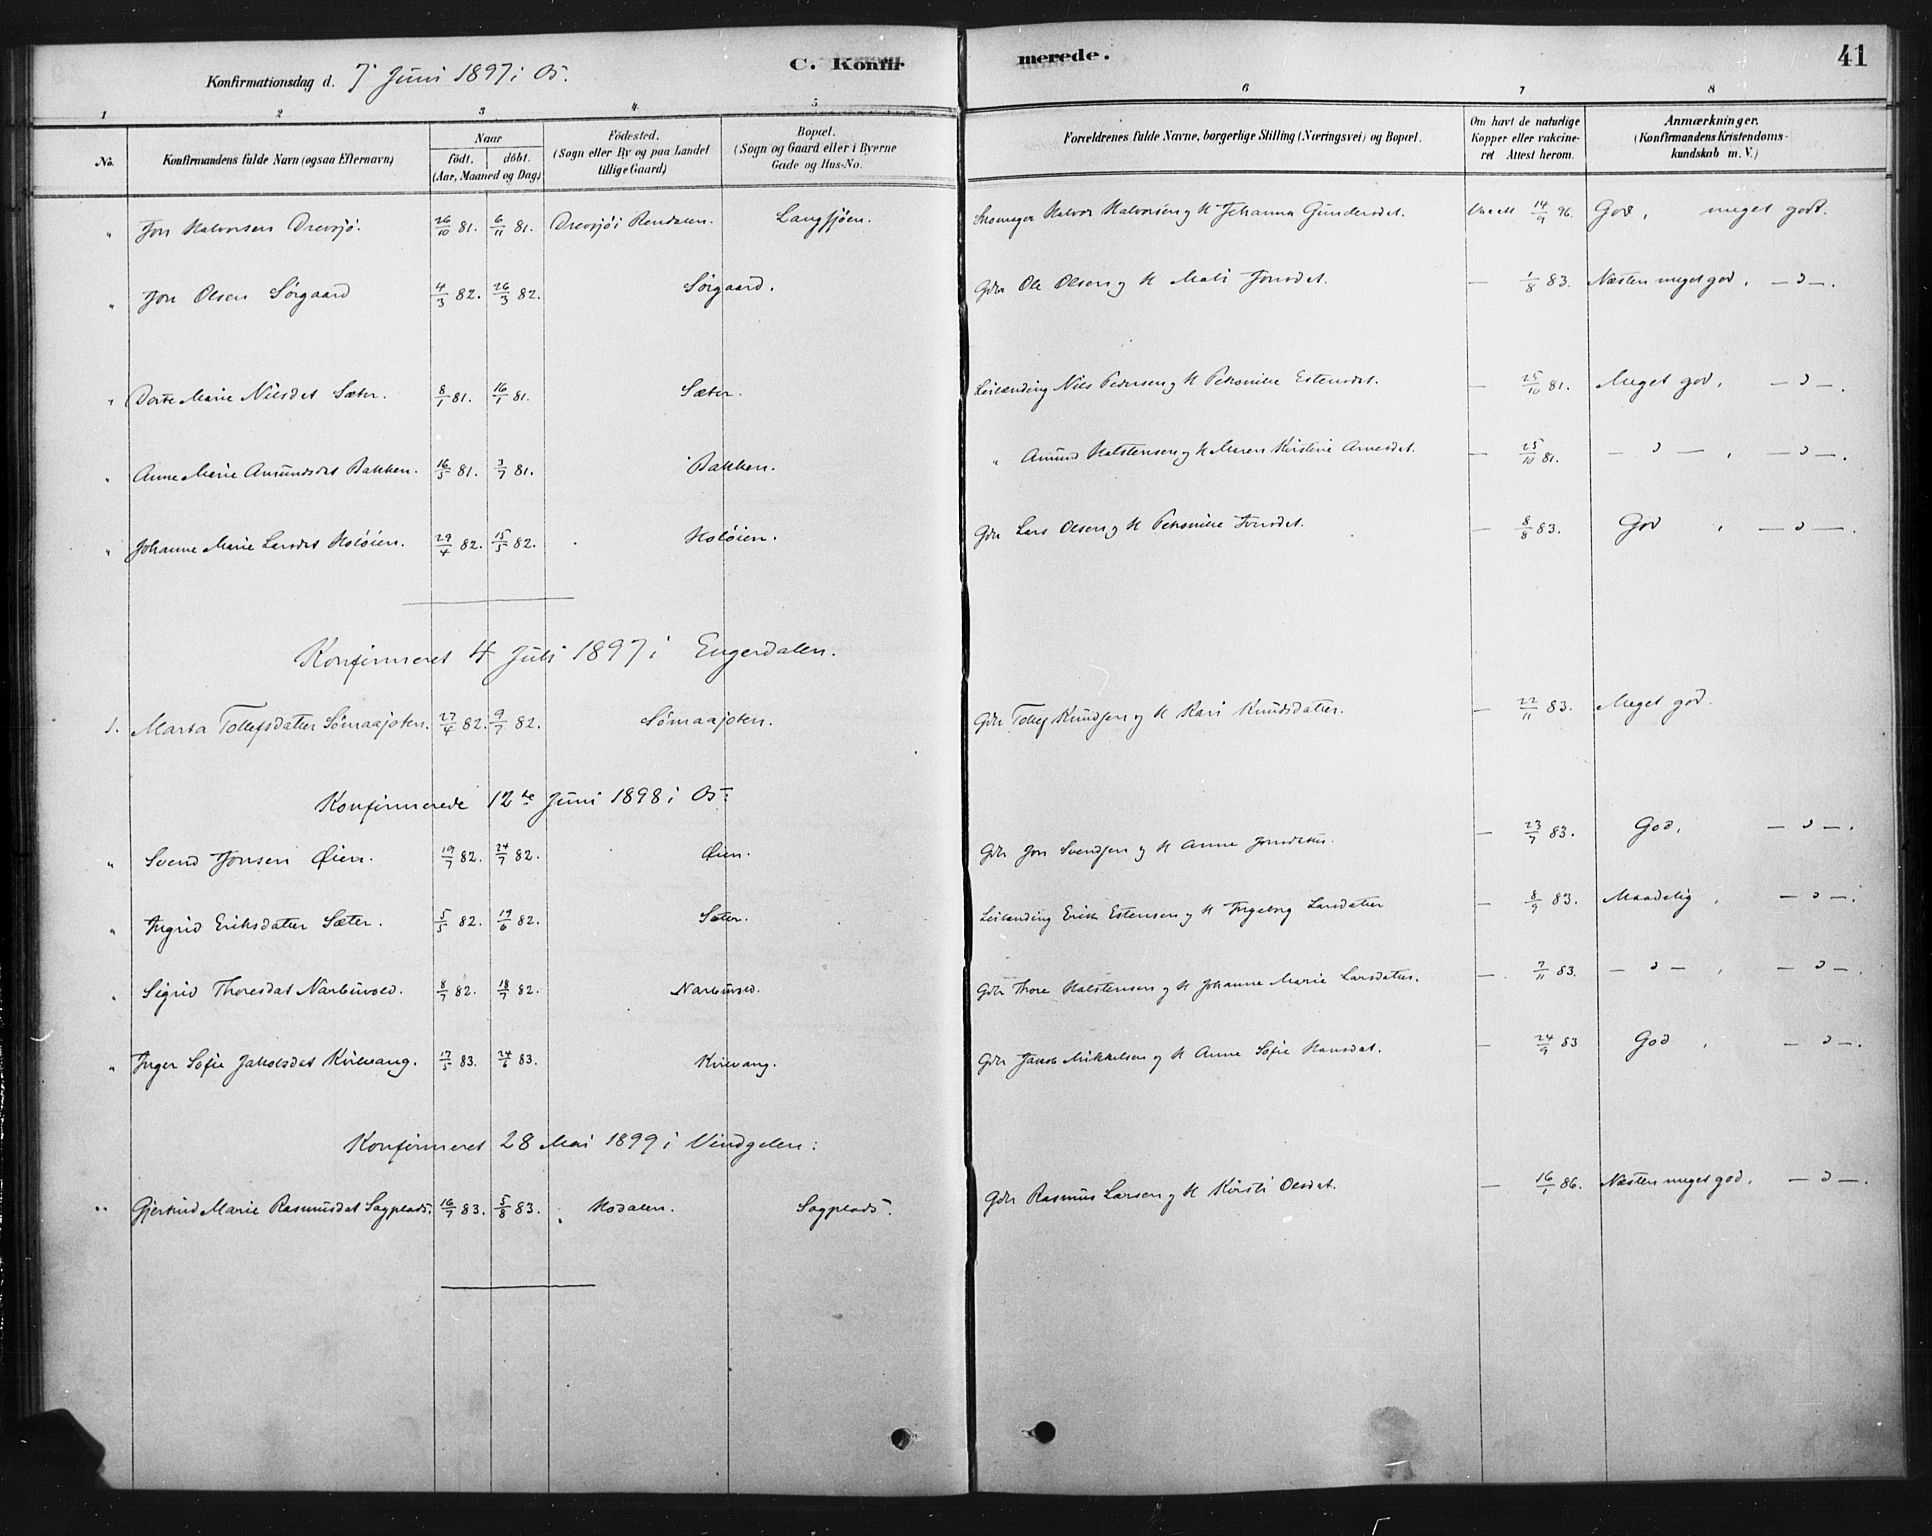 Konfirmationsdag d. 7 Juni 1897 i Os. C. Konfirmerede. 41
1 2 3 4 5 6 7 8
No. Konfirmandens fulde Navn (ogsaa Efternavn) Naar födt. döbt. (Aar, Maaned og Dag) Födested. (Sogn eller By og paa Landet tillige Gaard) Bopæl. (Sogn og Gaard eller i Byerne Gade og Hus-No. Forældrenes fulde Navne, borgerlige Stilling (Næringsvei) og Bopæl. Om havt de naturlige Kopper eller vakcineret Attest herom. Anmærkninger. (Konfirmandens Kristendomskundskab m. V.)
" Jon Halvorsen Drevsjö. 26/10 81. 6/11 81. Drevsjö i Rendalen. Langsjöen. Skomager Halvor Halvorsen og H Johanna Gundersdat. Vacc 14/9 96. God, meget godt.
" Jon Olsen Sörgaard 4/3 82. 26/3 82. Sörgaard. Gdbr Ole Olsen og H Mali Jonsdat. — 1/8 83. Næsten meget god, — " —.
" Dorte Marie Nilsdat Sæter. 8/1 81. 16/1 81. Sæter. Leilænding Nils Pedersen og H Petronille Estensdat. — 25/10 81. Meget god, — " —.
" Anne Marie Amundsdat Bakken. 16/5 81. 3/7 81. Bakken. " Amund Halstensen og H Maren Kirstine Arnesdat. — 25/10 81. — " — , — " —.
" Johanne Marie Larsdat Holöien. 29/4 82. 15/5 82. Holöien. Gdbr Lars Olsen og H Petronille Jonsdat. — 8/8 83. God , — " —.
Konfirmeret 4 Juli 1897 i Engerdalen.
1. Marta Tollefsdatter Sömaajoten. 27/4 82. 9/7 82. Sömaajoten. Gdbr Tollef Knudsen og H Kari Knudsdatter. — 22/11 83. Meget god.
Konfirmerede 12te Juni 1898 i Os:
" Svend Jonsen Øien. 19/7 82. 24/7 82. Øien. Gdbr Jon Svendsen og H Anne Jonsdatter. — 23/7 83. God, — " —.
" Ingrid Eriksdatter Sæter. 5/5 82. 19/6 82. Sæter. Leilænding Erik Estensen og H Ingeborg Larsdatter — 8/9 83. Maadelig , — " —.
" Sigrid Thoresdat Narbuvold. 8/7 82. 18/7 82. Narbuvold. Gdbr Thore Halstensen og H Johanne Marie Larsdatter. — 7/11 83. — " — , — " —.
" Inger Sofie Jakobsdat Kvilvang. 17/5 83. 24/6 83. Kvilvang. Gdbr Jakob Mikkelsen og H Anne Sofie Hansdat. — 24/9 83 God , — " —.
Konfirmeret 28 Mai 1899 i Vindgelen:
" Gjertrud Marie Rasmusdat Sagplads. 16/7 83. 5/8 83. Hodalen. Sagplads. Gdbr Rasmus Larsen og H Kirsti Olsdat. — 16/1 86. Næsten meget god, — " —.